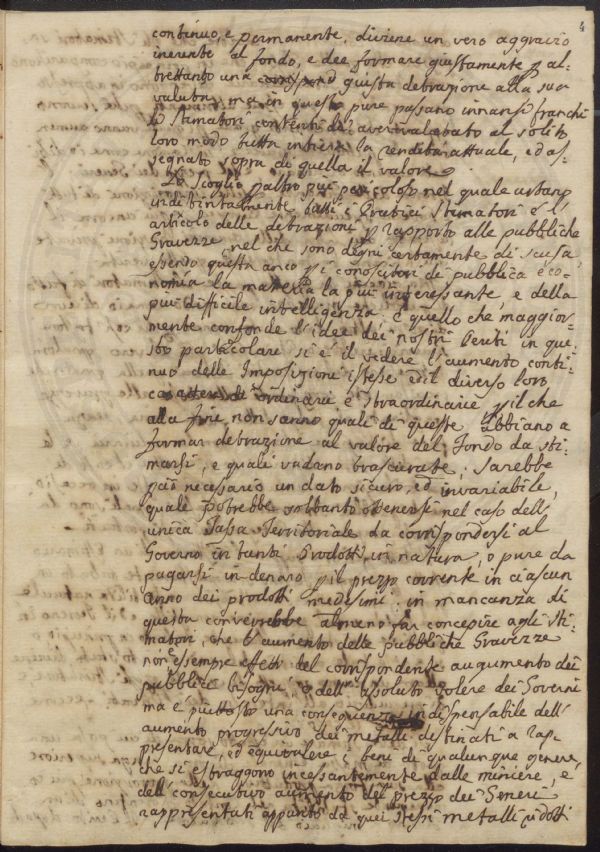 4
continuo, e permanente, diviene un vero aggravio
inerente al fondo, e dee formare giustamente p al-
trettanto una giusta detrazione alla sua
valuta, ma in questo pure passano innanzi franchi
li stimatori contenti di aver valutato al solito
loro modo tutta intiera la rendita attuale, ed as-
segnato sopra di quella il valore.
Lo scoglio p altro più pericoloso nel quale urtano
indistintamente tutti i Pratici Stimatori è l'
articolo delle detrazioni p rapporto alle pubbliche
Gravezze, nel che sono degni certamente di scusa,
essendo questa anco p i conoscitori di pubblica eco-
nomia la materia la più interessante, e della
più difficile intelligenza, e quello che maggior-
mente confonde l'idee dei nostri Periti in que-
sto particolare si è il vedere l'aumento conti-
nuo delle Imposizioni istesse ed il diverso loro
carattere di ordinarie e straordinarie p il che
alla fine non sanno quali di queste abbiano a
formar detrazione al valore del Fondo da sti-
marsi, e quali vadano trascurate; Sarebbe
necessario un dato sicuro, ed invariabile,
quale potrebbe soltanto ottenersi nel caso dell'
unica Tassa Territoriale da corrispondersi al
Governo in tanti Prodotti in natura, o pure da
pagarsi in denaro p il prezzo corrente in ciascun
anno dei prodotti medesimi: in mancanza di
questa converrebbe almeno far concepire agli sti-
matori, che l'aumento delle pubbliche Gravezze
non è sempre effetto del corrispondente augumento dei
pubblici bisogni, o dell'assoluto volere dei Governi
ma è piuttosto una conseguenza indispensabile dell'
aumento progressivo dei metalli destinati a rap-
presentare, ed equivalere i beni di qualunque genere,
che si estraggono incessantemente dalle miniere, e
dell consecutivo aumento del prezzo dei Generi
rappresentati appunto da quei stessi metalli ridotti